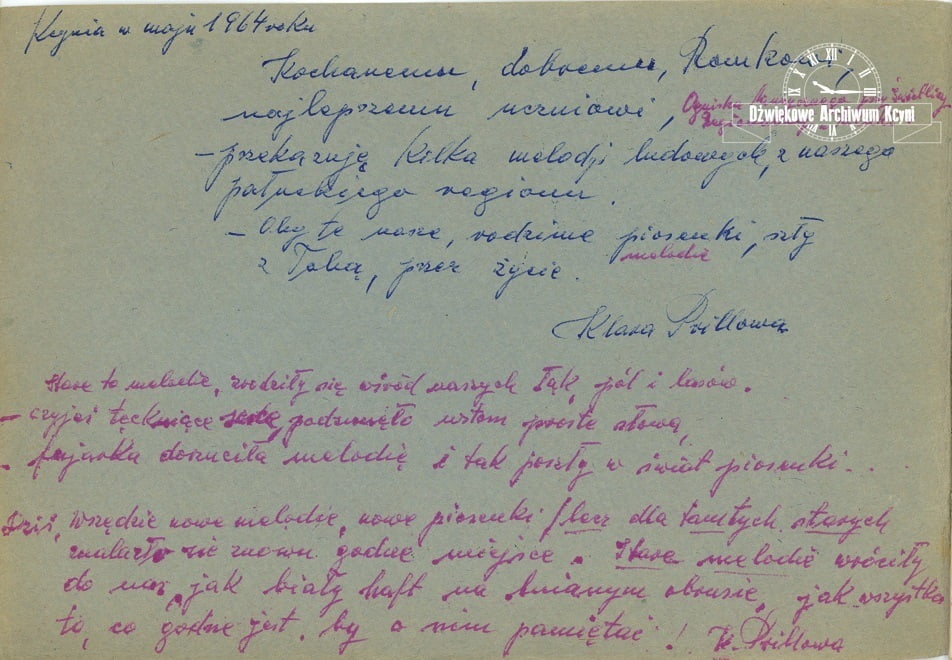 Kcynia w maju 1964 roku
Kochanemu, dobremu, Romkowi,
najlepszemu uczniowi, Ogniska Muzycznego przy Świetlicy
Dźwiękowe Archiwum Kcyni
– przekazuję kilka melodji ludowych, z naszego
pałuckiego regionu.
– Oby te nasze, rodzime piosenki, szły
melodie
z Tobą, przez życie.
Klara Prillowa
Stare to melodie, zrodziły się wśród naszych łąk, pól i lasów.
– czyjeś tęskniące serce, podsunęło ustom proste słowa,
– fujarka dorzuciła melodię i tak poszły w świat piosenki...
Dziś, wszędzie nowe melodie, nowe piosenki, lecz dla tamtych, starych
znalazło się znowu godne miejsce. Stare melodie wróciły
do nas, jak biały haft na lnianym obrusie, jak wszystko
to, co godne jest, by o nim pamiętać! K. Prillowa